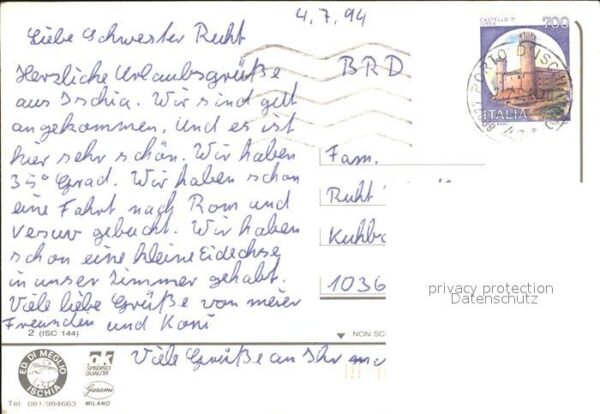 4.7.94
Liebe Schwester Ruht
Herzliche Urlaubsgrüße
aus Ischia. Wir sind gut
angekommen, und es ist
hier sehr schön. Wir haben
35° Grad. Wir haben schon
eine Fahrt nach Rom und
Vesuv gebucht. Wir haben
schon eine kleine Eidechse
in unser Zimmer gehabt.
Viele liebe Grüße von meier
Freunden und Koni
Viele Grüße an Ihr
BRD
Fam.
Ruht
Kuhb
1036
CASTELLO DI
700
ITALIA
PORTO D'ISCHIA
privacy protection
Datenschutz
2 (ISC 144)
NON SC
ED. DI MEGLIO
ISCHIA
OK
SPEDISCI
QUALITÀ
Garami
MILANO
Tel. 081-984663